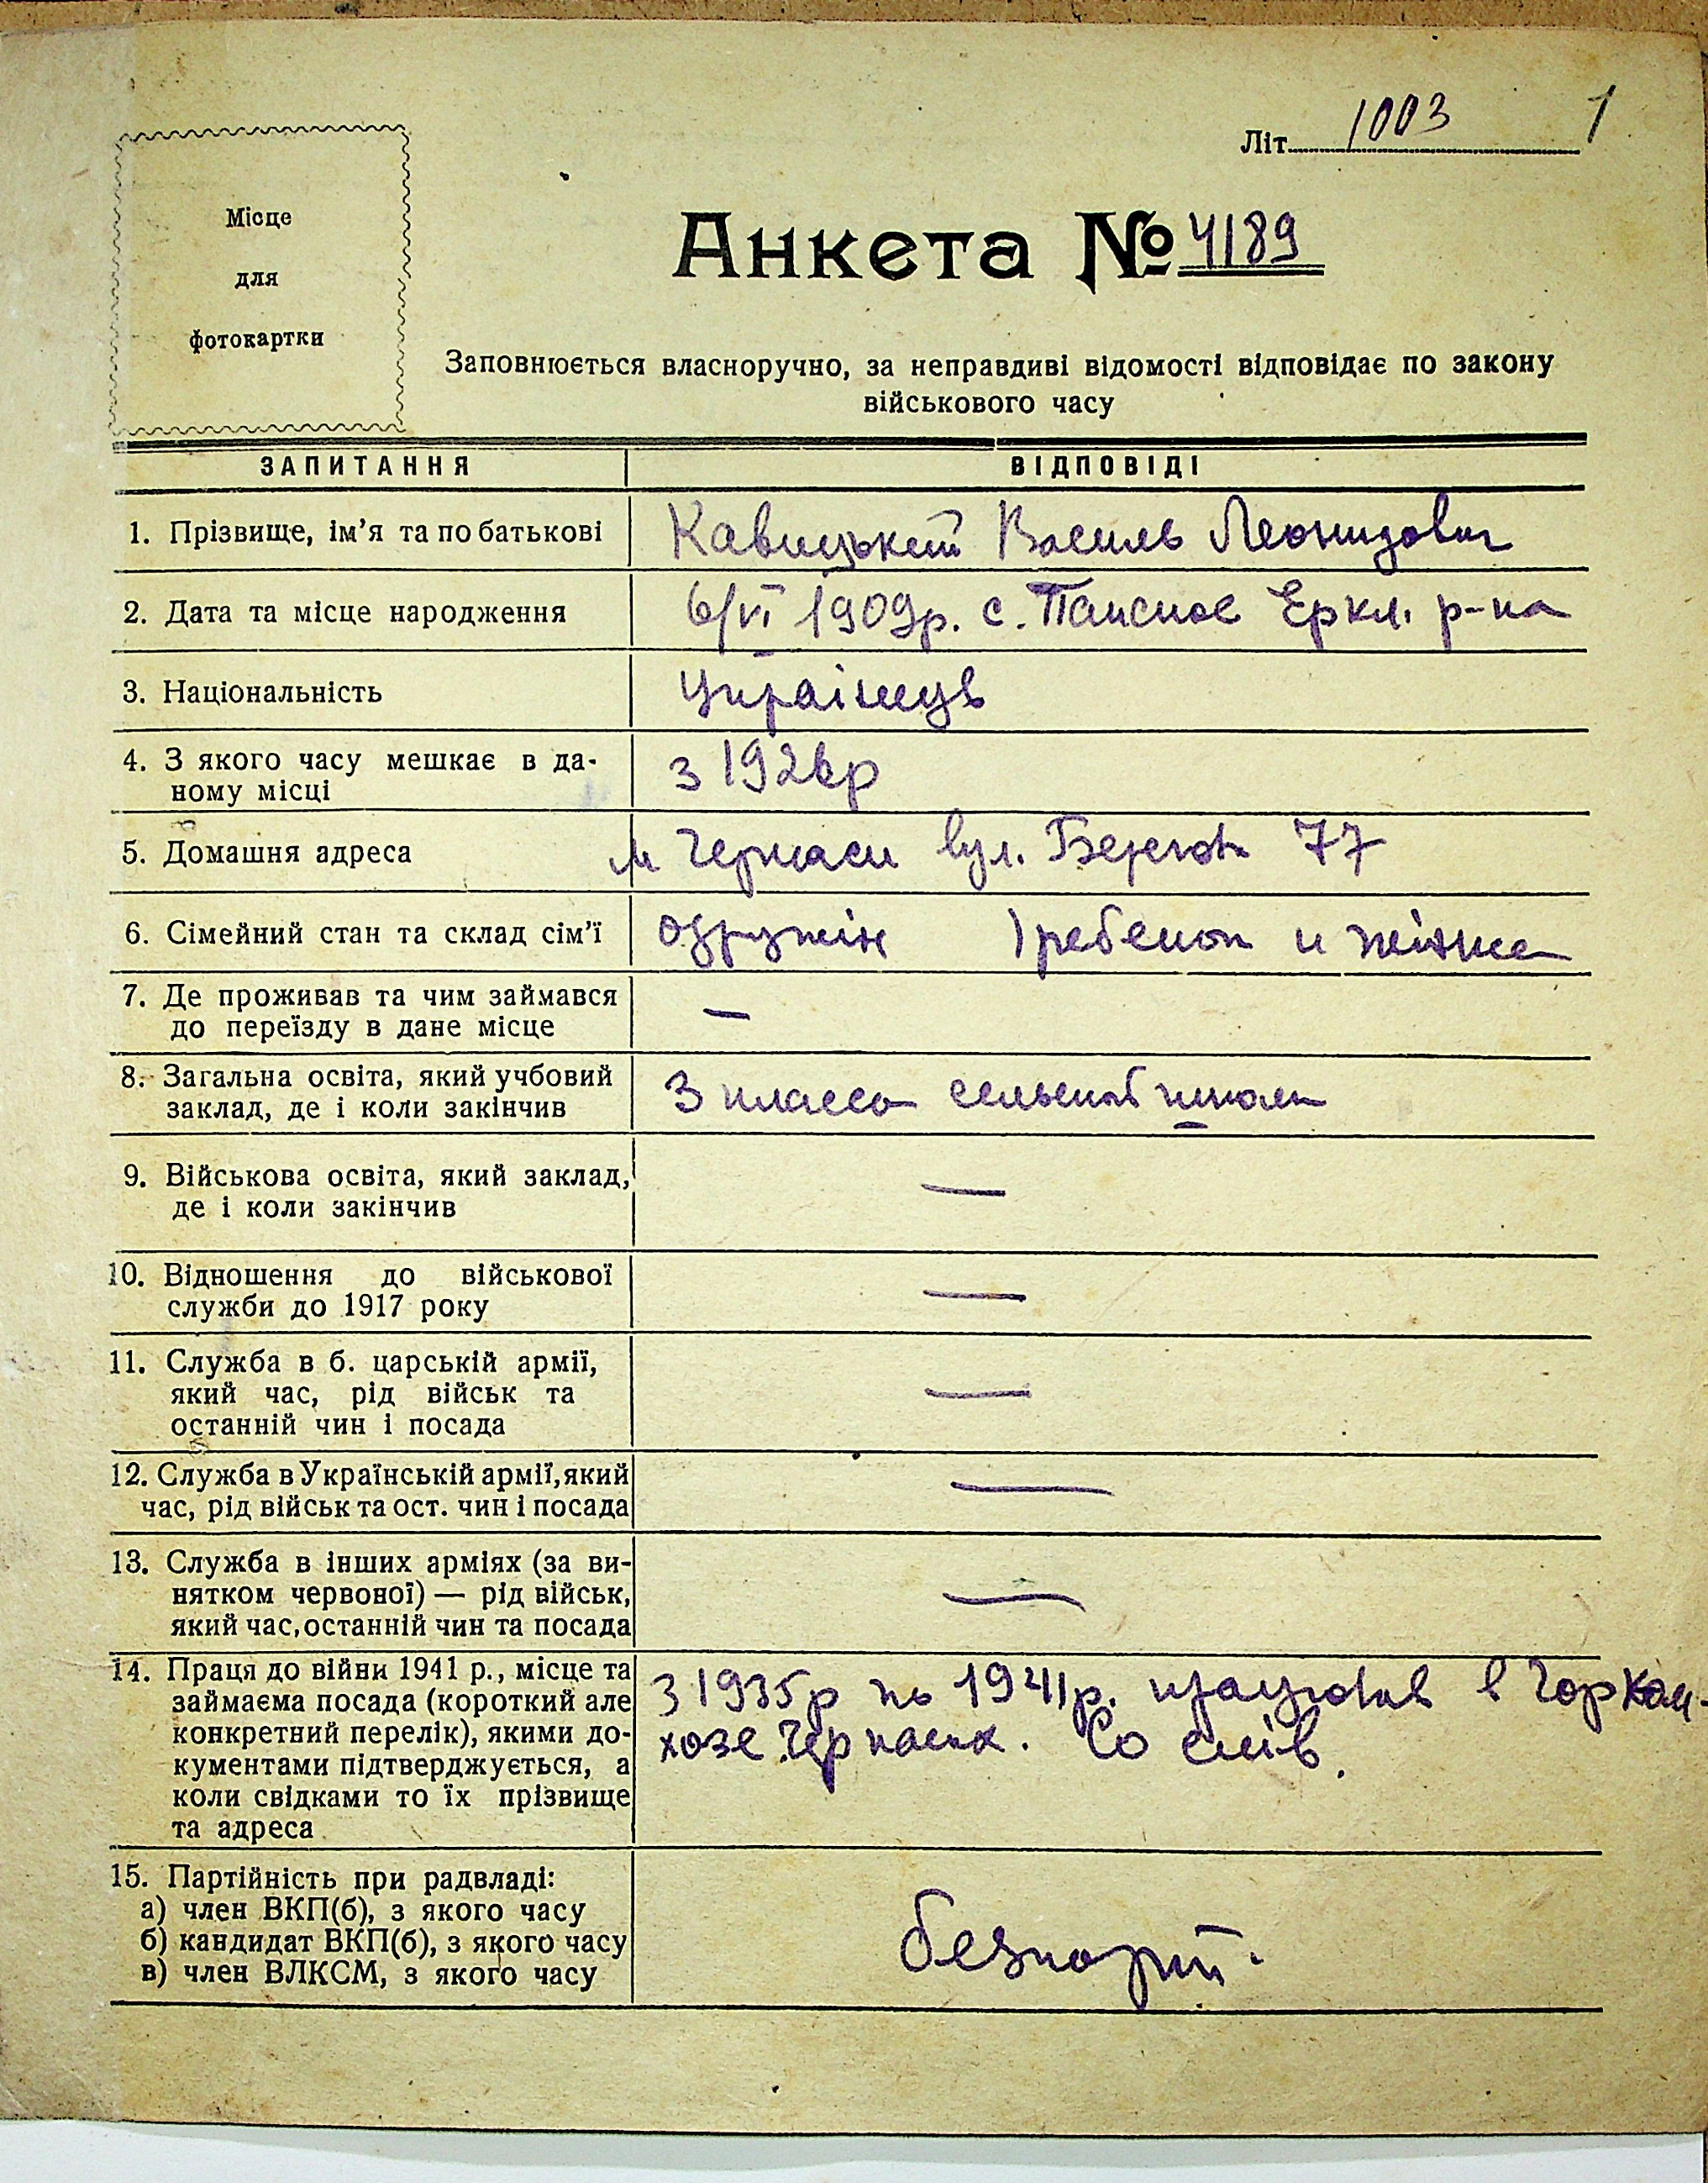 Літ. 1003 1
Місце
для
фотокартки
Анкета № 4189
Заповнюється власноручно, за неправдиві відомості відповідає по закону
військового часу
ЗАПИТАННЯ ВІДПОВІДІ
1. Прізвище, ім’я та по батькові Кавицький Василь Леонидович
2. Дата та місце народження 6/VI 1909р. с. Еркл. р-на
3. Національність Українець
4. З якого часу мешкає в да-
ному місці з 1926р
5. Домашня адреса м Черкаси вул. Берегова 77
6. Сімейний стан та склад сім’ї одружин 1 ребенок и жінка
7. Де проживав та чим займався
до переїзду в дане місце —
8. Загальна освіта, який учбовий
заклад, де і коли закінчив 3 класса сельской школи
9. Військова освіта, який заклад,
де і коли закінчив —
10. Відношення до військової
служби до 1917 року —
11. Служба в б. царській армії,
який час, рід військ та
останній чин і посада —
12. Служба в Українській армії, який
час, рід військ та ост. чин і посада —
13. Служба в інших арміях (за ви-
нятком червоної) — рід військ,
який час, останній чин та посада —
14. Праця до війни 1941 р., місце та
займаєма посада (короткий але
конкретний перелік), якими до-
кументами підтверджується, а
коли свідками то їх прізвище
та адреса
з 1935р по 1941р. працював в Горком-
хозе Черкаси. Со слів.
15. Партійність при радвладі:
а) член ВКП(б), з якого часу
б) кандидат ВКП(б), з якого часу
в) член ВЛКСМ, з якого часу
безпарт.